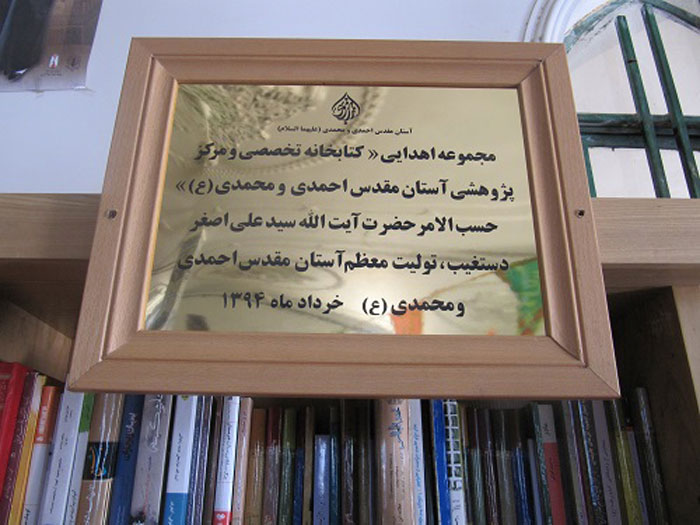 آستان مقدس احمدی و محمدی (علیهما السلام)
مجموعه اهدایی « کتابخانه تخصصی و مرکز
پژوهشی آستان مقدس احمدی و محمدی (ع) »
حسب الامر حضرت آیت الله سید علی اصغر
دستغیب، تولیت معظم آستان مقدس احمدی
و محمدی (ع) خرداد ماه ۱۳۹۴